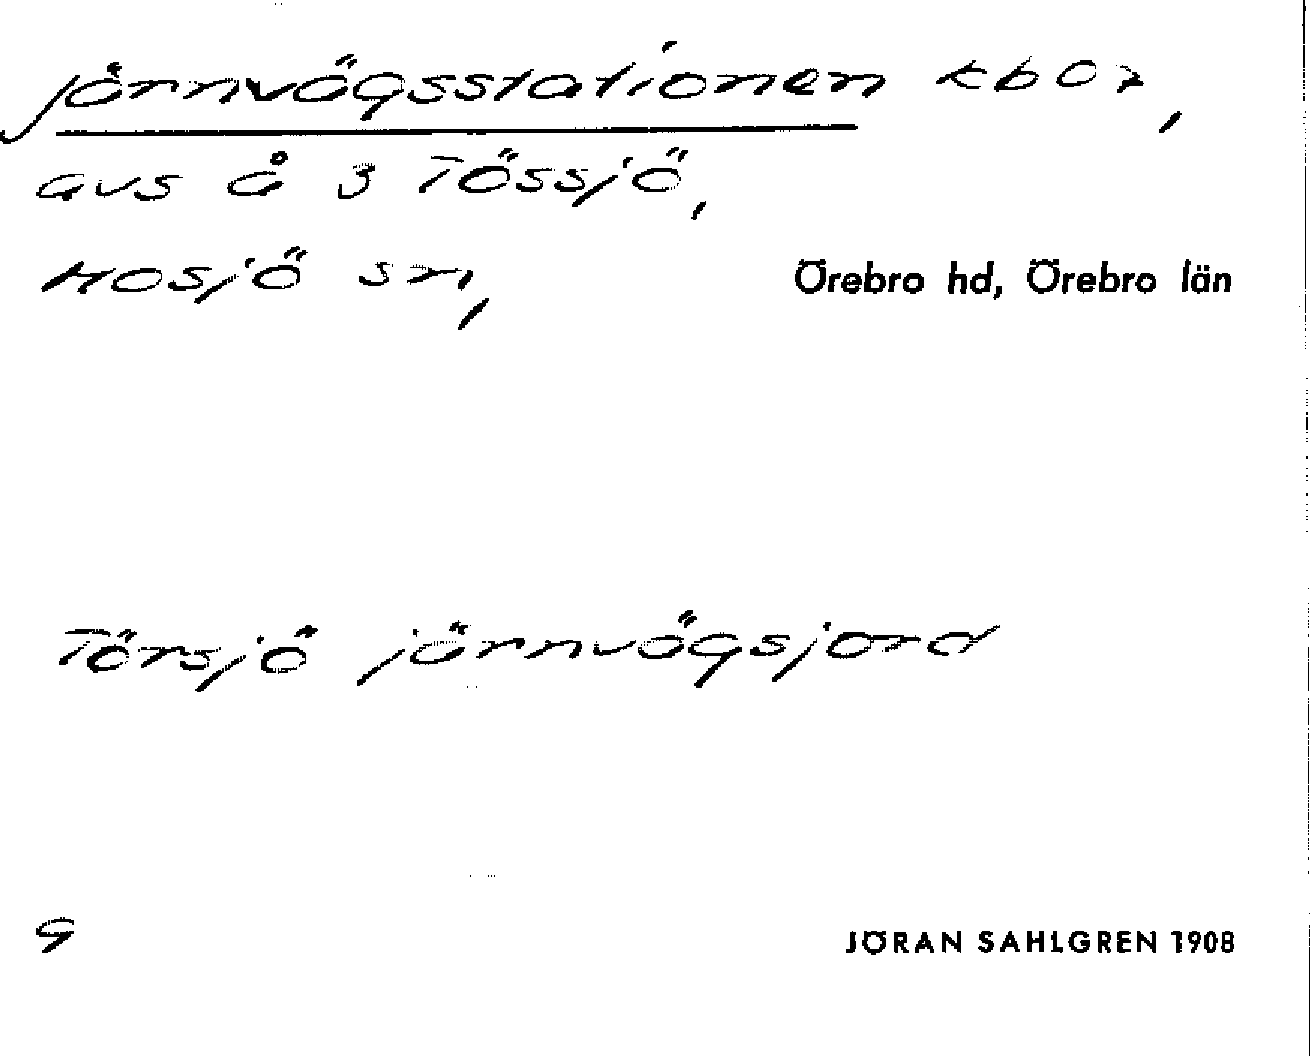 järnvägsstationen kbQ7,
avs å 3 Tössjö,
Mosjö sn, Örebro hd, Örebro län
Törsjö järnvägsjord
9 JÖRAN SAHLGREN 1908